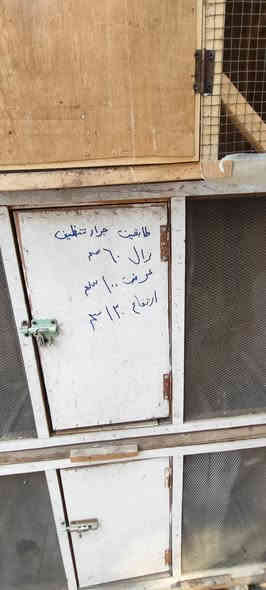 طابقين جرار تنظيف
نزال ٦٠ سم
عرض ١٠٠ سم
ارتفاع ١٣٠ سم